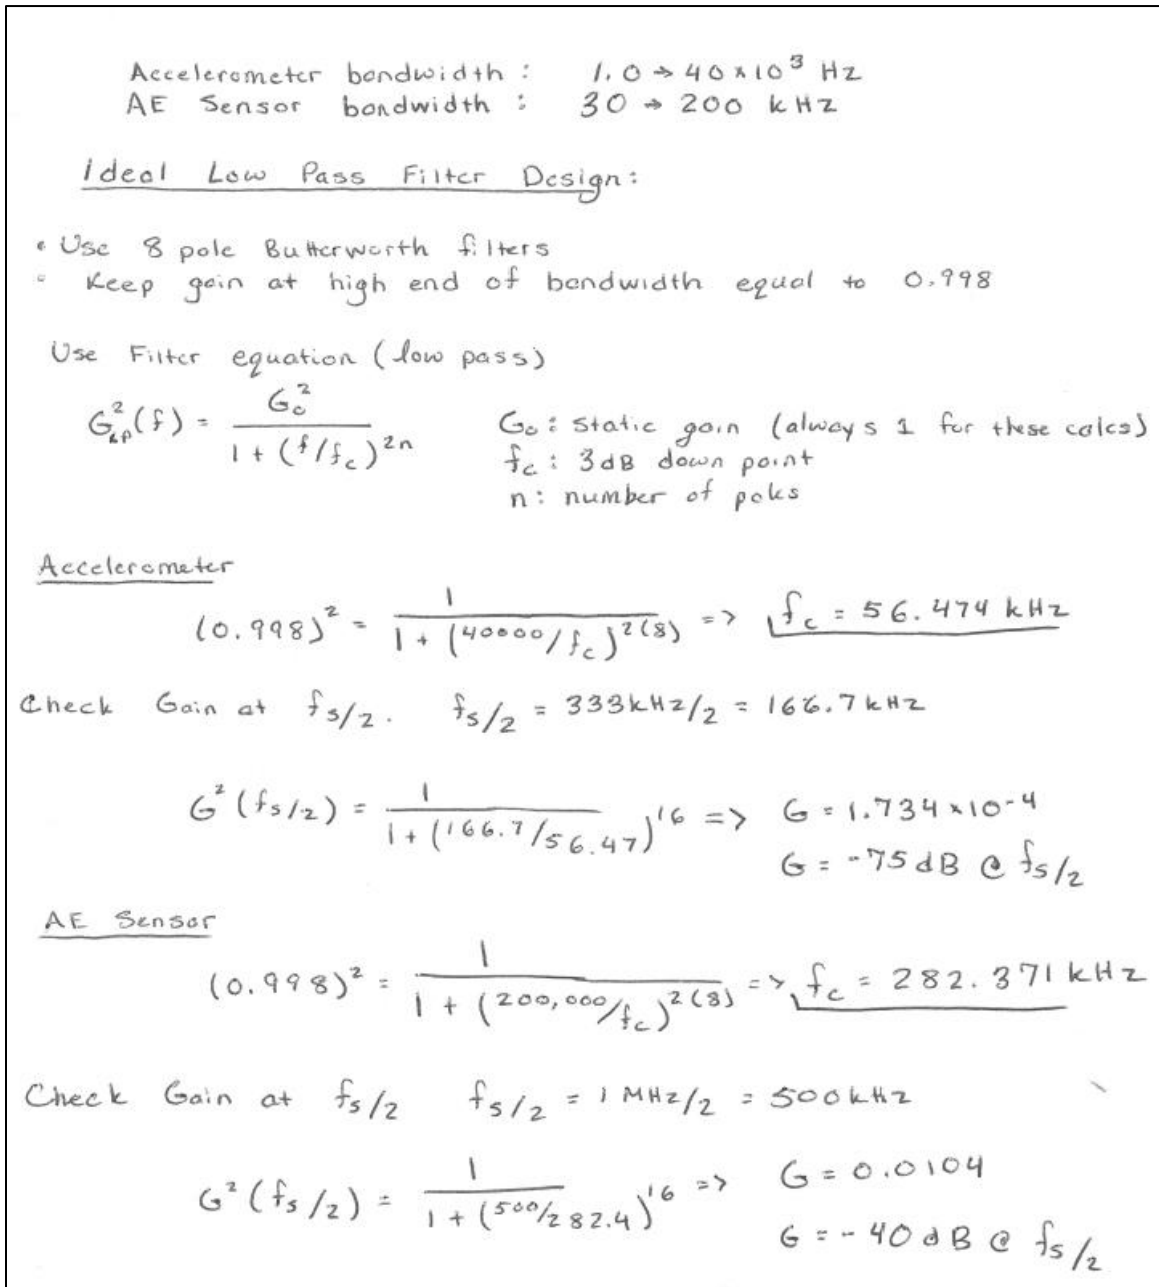 Accelerometer bandwidth : 1.0 → 40 x 10³ Hz
AE Sensor bandwidth : 30 → 200 kHz
Ideal Low Pass Filter Design:
• Use 8 pole Butterworth filters
• Keep gain at high end of bandwidth equal to 0.998
Use Filter equation (low pass)
G²_LP(f) = G₀² / (1 + (f/f_c)^2n)
G₀ : static gain (always 1 for these calcs)
f_c : 3dB down point
n : number of poles
Accelerometer
(0.998)² = 1 / (1 + (40000/f_c)^2(8)) => f_c = 56.474 kHz
Check Gain at f_s/2. f_s/2 = 333kHz/2 = 166.7 kHz
G²(f_s/2) = 1 / (1 + (166.7/56.47)^16) => G = 1.734 x 10^-4
G = -75 dB @ f_s/2
AE Sensor
(0.998)² = 1 / (1 + (200,000/f_c)^2(8)) => f_c = 282.371 kHz
Check Gain at f_s/2 f_s/2 = 1 MHz/2 = 500 kHz
G²(f_s/2) = 1 / (1 + (500/282.4)^16) => G = 0.0104
G = -40 dB @ f_s/2